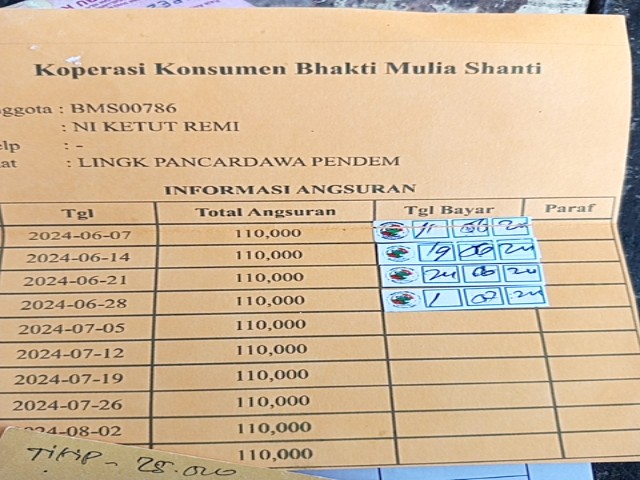 Koperasi Konsumen Bhakti Mulia Shanti
nggota : BMS00786
: NI KETUT REMI
elp : -
at : LINGK PANCARDAWA PENDEM
INFORMASI ANGSURAN
Tgl Total Angsuran Tgl Bayar Paraf
2024-06-07 110,000 11 06 24
2024-06-14 110,000 19 06 24
2024-06-21 110,000 24 06 24
2024-06-28 110,000 1 24
2024-07-05 110,000
2024-07-12 110,000
2024-07-19 110,000
2024-07-26 110,000
24-08-02 110,000
110,000
TITIP - 25.000